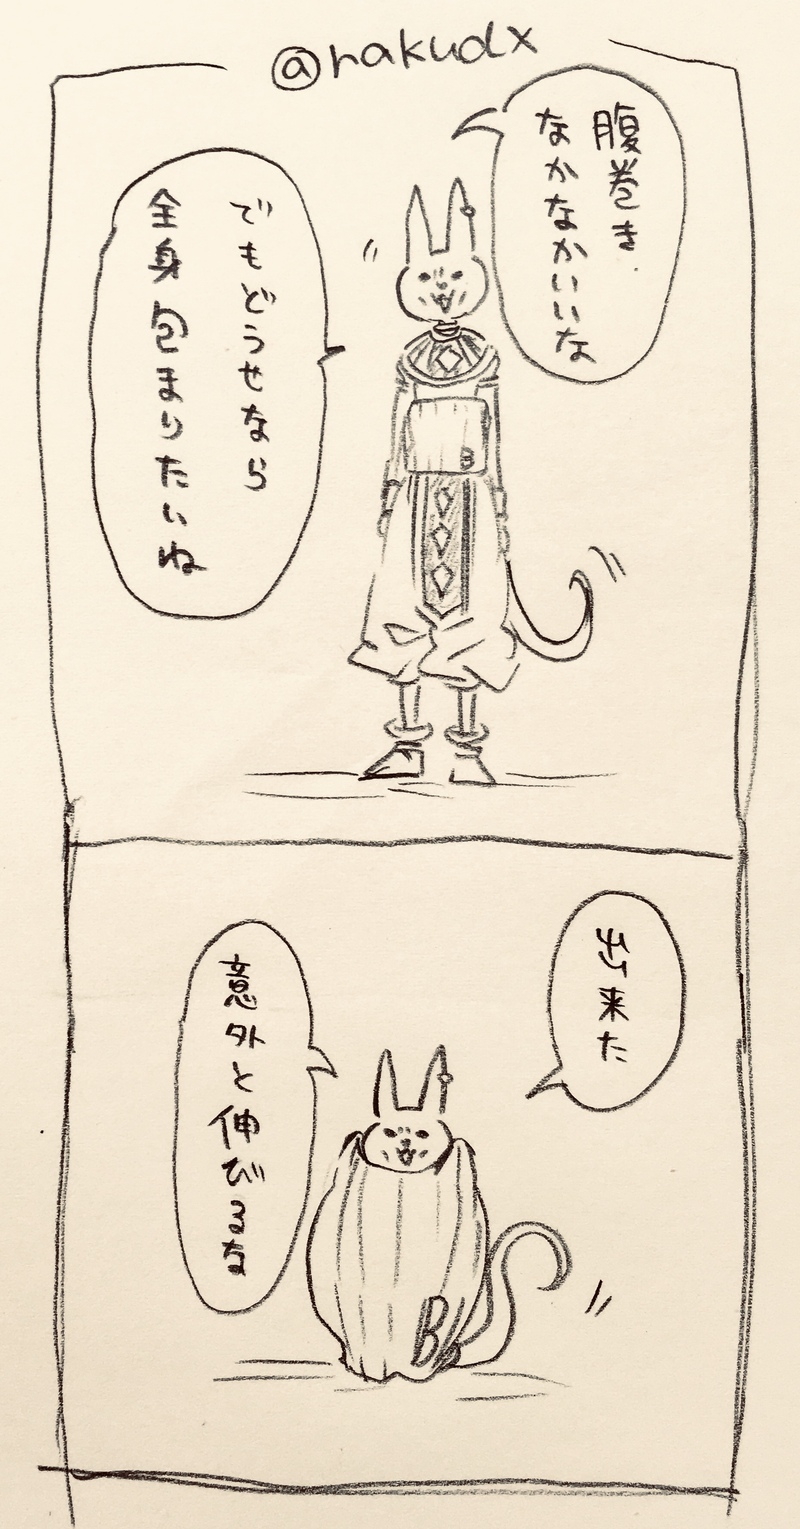 @rakudx
腹巻き
なかなかいいな
でもどうせなら
全身包まりたいね
B
出来た
意外と伸びるな
B